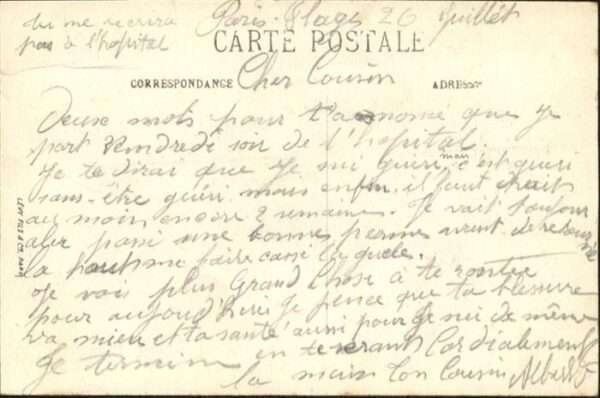 tu me recrira Paris-Plage 26 juillet
pas à l'hopital
CARTE POSTALE
CORRESPONDANCE Cher Cousin ADRESSE
Deux mots pour t'anonsé que je
part vendredi soir de l'hopital.
Je te dirai que je sui guéri mais c'est guéri
sans être guéri mais enfin il faut
au moin encore 2 semaines. Je vait toujour
aler passé une bonnes permes avent de retourné
la haut me faire cassé la gueule.
Je vois plus grand chose à te conter
pour aujourd'hui je pence que ta blesure
va mieu et ta santé aussi pour je sui de même
Je termine en te serant cordialement
la main ton cousin Albert
LEVY FILS & CIE PARIS